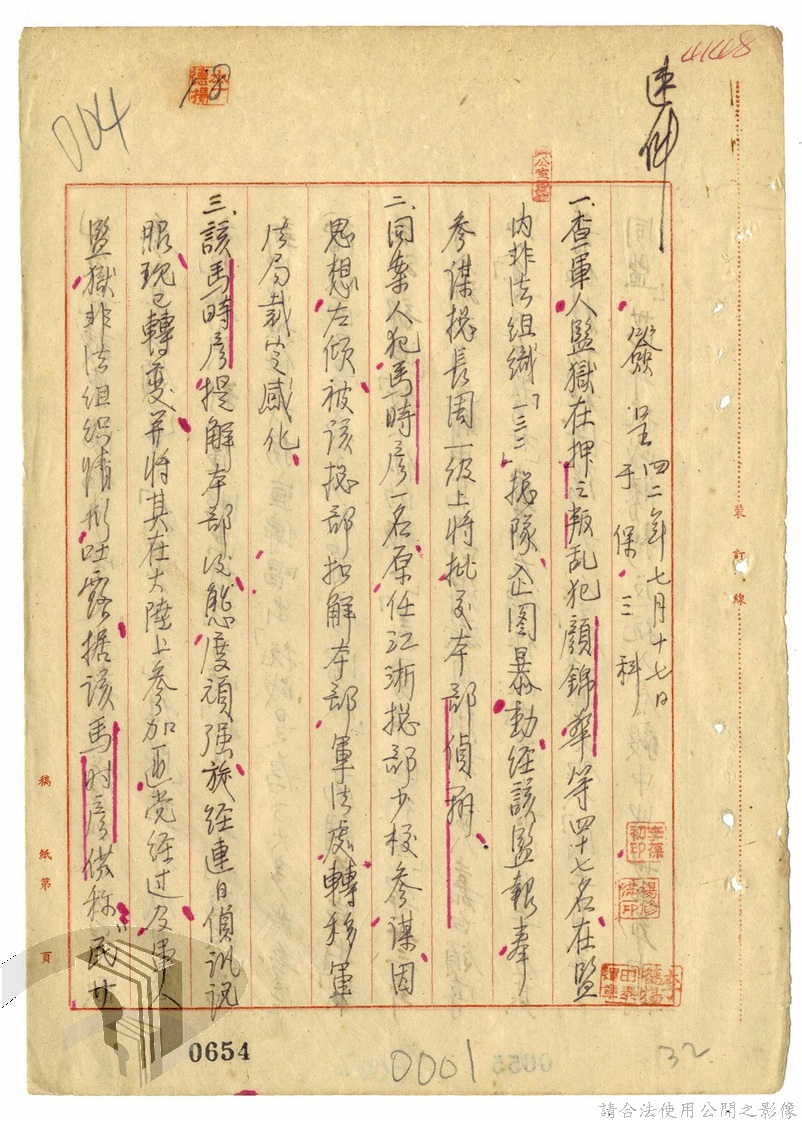 4148
速件
004
簽呈 四二年七月十七日
于保三科
一、查軍人監獄在押之叛乱犯顏錦華等四十七名在監
內非法組織「一三二」總隊企图暴動經該監報奉
參謀總長周一級上將批交本部偵辦
二、同案人犯馬時彥一名原任江浙總部少校參謀因
思想左傾被該總部扣解本部軍法處轉移軍
法局裁定感化
三、該馬時彥提解本部後態度頑强旋經連日偵訊說
服現已轉變并將其在大陸上參加匪党經过及軍人
監獄非法組织情形吐露据該馬时彥供称：「民廿
裝訂線
稿紙第 頁
0654
0001
32
請合法使用公開之影像